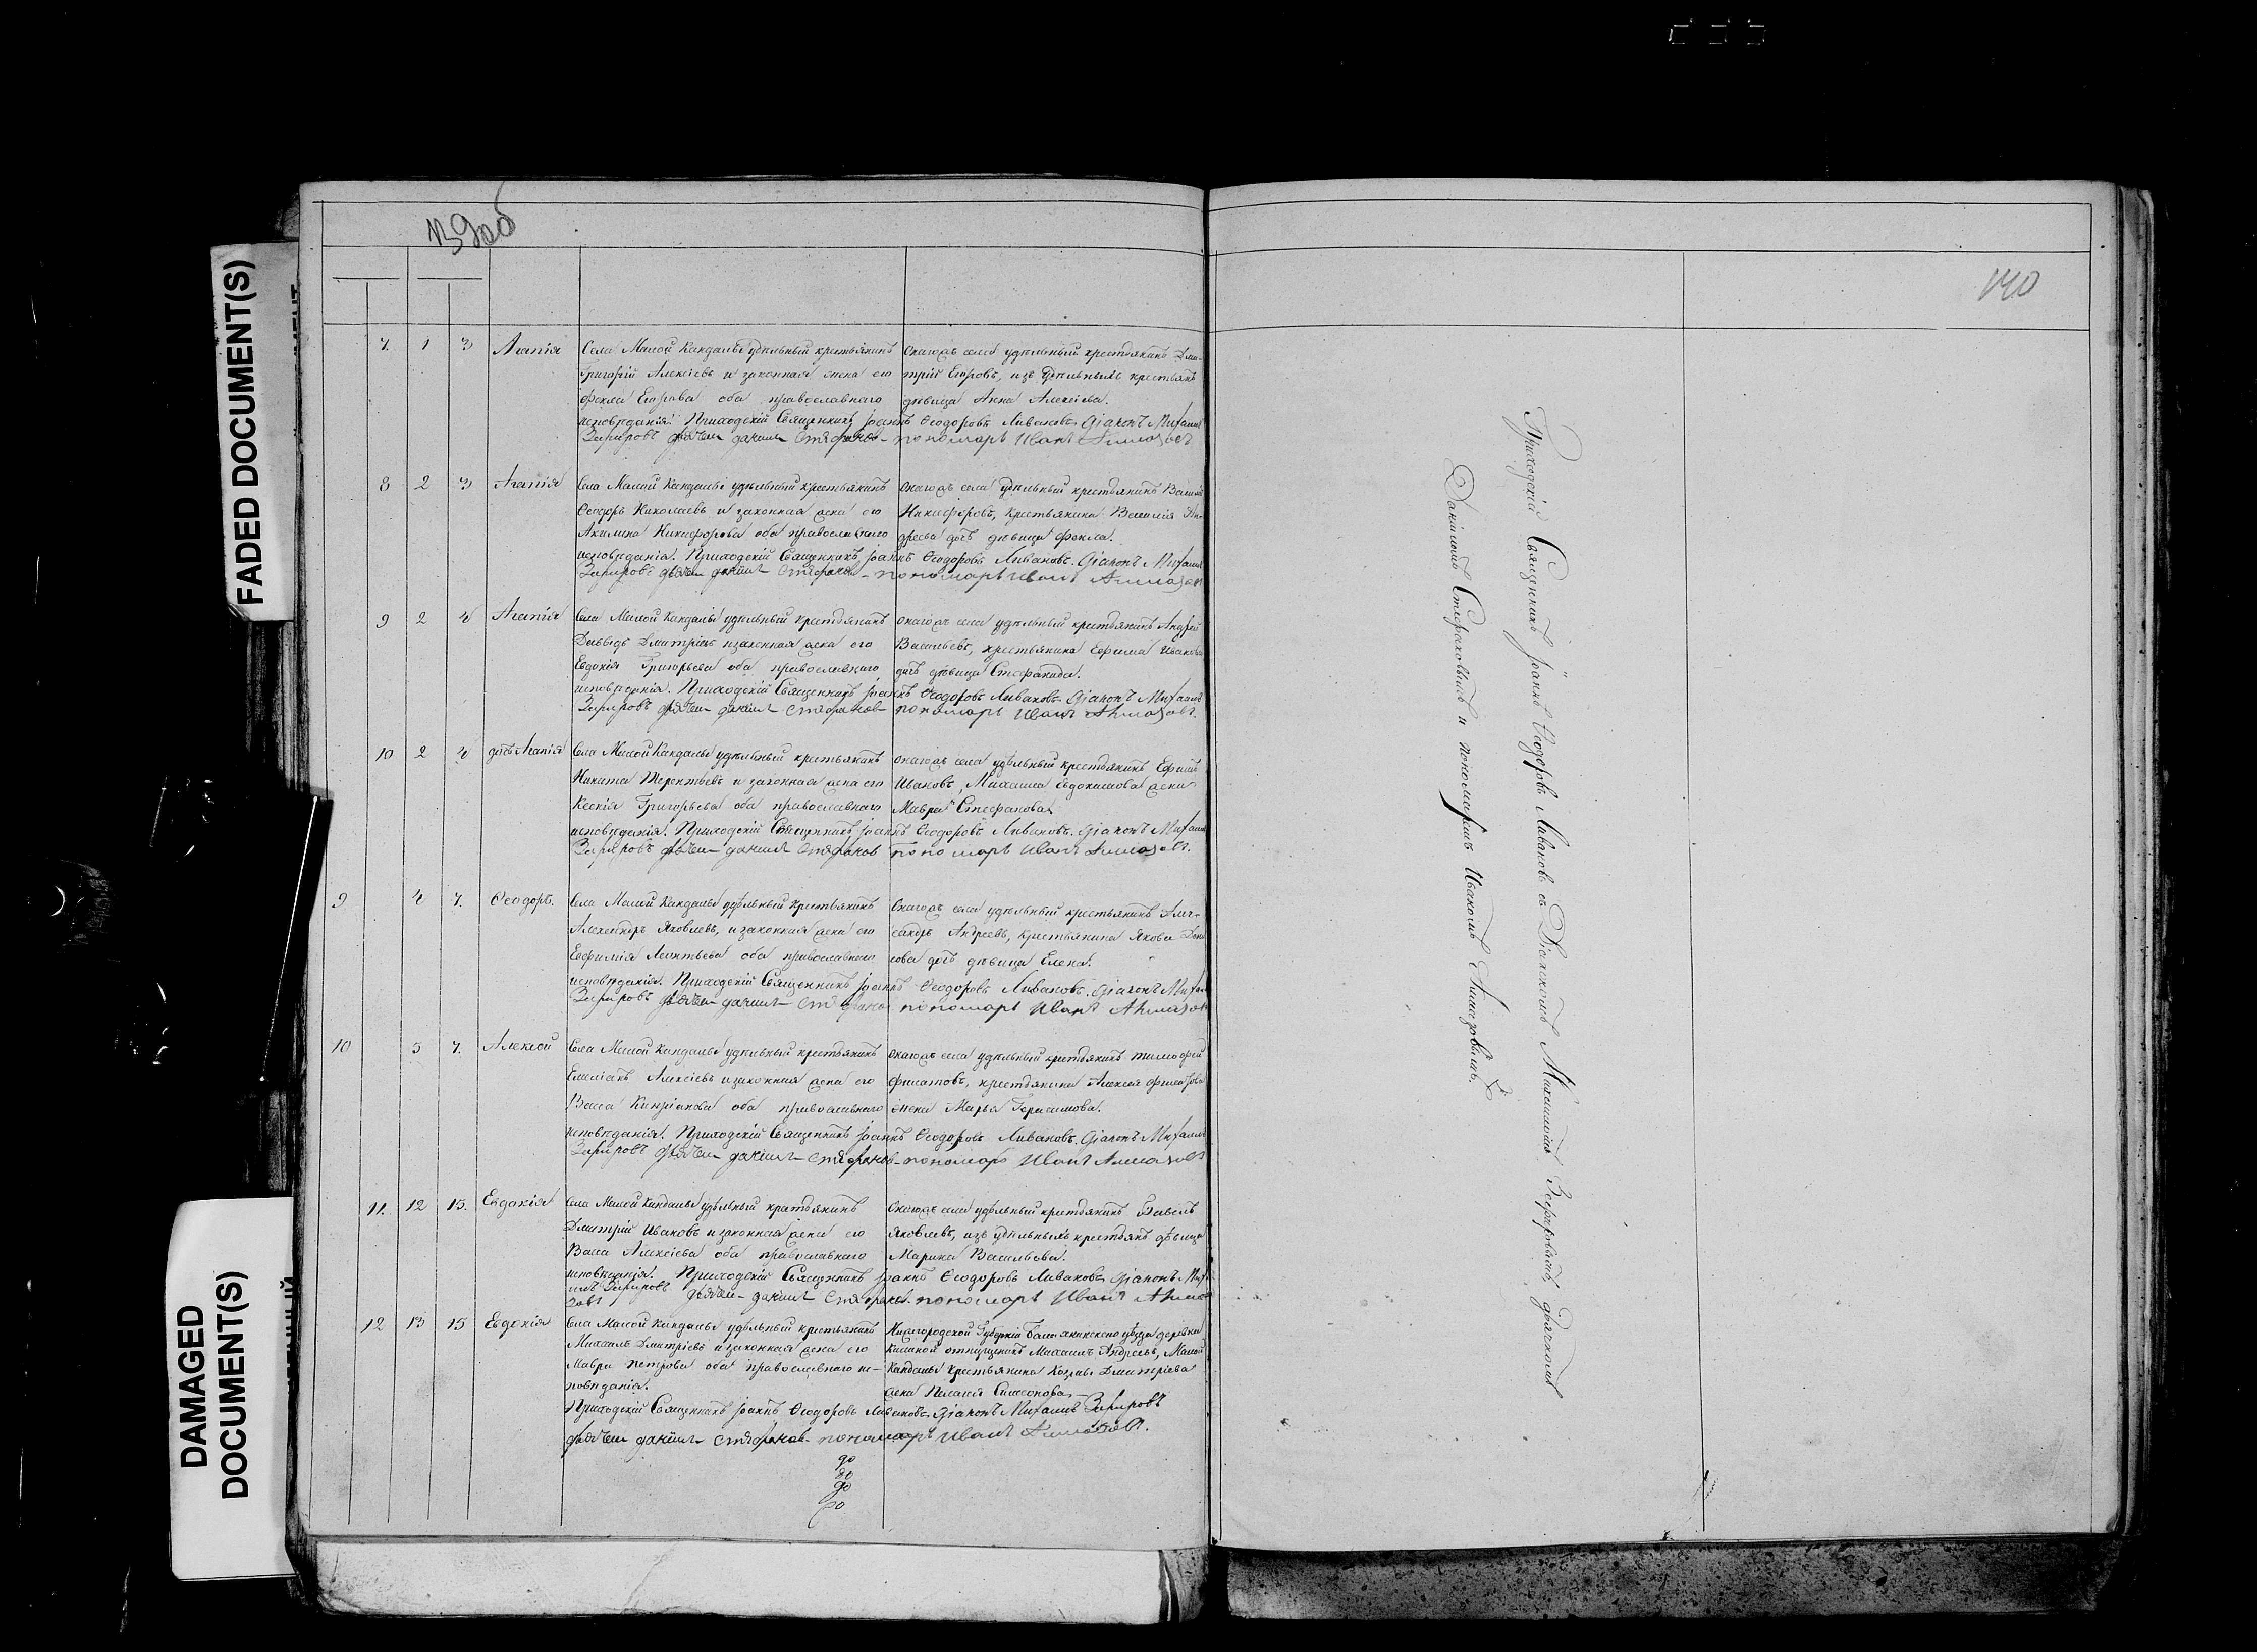 FADED DOCUMENT(S)
DAMAGED
DOCUMENT(S)
139об
7. 1 3 Агапія Села Малой Кандалы удѣльный крестьянинъ Онагожъ села удѣльный крестьянинъ Дми-
Григорій Алексіевъ и законная жена его трій Егоровъ, изъ удѣльныхъ крестьянъ
Фекла Егорова оба православнаго дѣвица Анна Алексіева.
исповѣданія. Приходскій Священникъ Іоаннъ Ѳеодоровъ Ливановъ. Діаконъ Михаилъ
Зефировъ дьячекъ Даніилъ Стефановъ пономарь Иванъ
8 2 3 Агапія Села Малой Кандалы удѣльный крестьянинъ Онагожъ села удѣльный крестьянинъ Василій
Ѳеодоръ Николаевъ и законная жена его Никифоровъ, крестьянина Василія Ан-
Акилина Никифорова оба православнаго дреева дочь дѣвица Фекла.
исповѣданія. Приходскій Священникъ Іоаннъ Ѳеодоровъ Ливановъ. Діаконъ Михаилъ
Зефировъ дьячекъ Даніилъ Стефановъ пономарь Иванъ
9 2 4 Агапія Села Малой Кандалы удѣльный крестьянинъ Онагожъ села удѣльный крестьянинъ Андрей
Давыдъ Дмитріевъ и законная жена его Васильевъ, крестьянина Ефима Иванова
Евдокія Григорьева оба православнаго дочь дѣвица Стефанида.
исповѣданія. Приходскій Священникъ Іоаннъ Ѳеодоровъ Ливановъ. Діаконъ Михаилъ
Зефировъ дьячекъ Даніилъ Стефановъ пономарь Иванъ
10 2 4 Агапія Села Малой Кандалы удѣльный крестьянинъ Онагожъ села удѣльный крестьянинъ Ефимъ
Никита Терентьевъ и законная жена его Ивановъ, Михаила Евдокимова жена
Ксенія Григорьева оба православнаго Мавра Стефанова.
исповѣданія. Приходскій Священникъ Іоаннъ Ѳеодоровъ Ливановъ. Діаконъ Михаилъ
Зефировъ дьячекъ Даніилъ Стефановъ пономарь Иванъ
9 4 7. Ѳеодоръ. Села Малой Кандалы удѣльный крестьянинъ Онагожъ села удѣльный крестьянинъ Алек-
Александръ Яковлевъ, и законная жена его сандръ Андреевъ, крестьянина Якова
Евфимія Леонтьева оба православнаго дочь дѣвица Елена.
исповѣданія. Приходскій Священникъ Іоаннъ Ѳеодоровъ Ливановъ. Діаконъ Михаилъ
Зефировъ дьячекъ Даніилъ Стефановъ пономарь Иванъ
10 5 7. Алексѣй Села Малой Кандалы удѣльный крестьянинъ Онагожъ села удѣльный крестьянинъ Тимофей
Емеліанъ Алексіевъ и законная жена его Филатовъ, крестьянина Алексея Филатова
Васса Кипріанова оба православнаго жена Марья Герасимова.
исповѣданія. Приходскій Священникъ Іоаннъ Ѳеодоровъ Ливановъ. Діаконъ Михаилъ
Зефировъ дьячекъ Даніилъ Стефановъ пономарь Иванъ
11. 12 15. Евдокія Села Малой Кандалы удѣльный крестьянинъ Онагожъ села удѣльный крестьянинъ Павелъ
Дмитрій Ивановъ и законная жена его Яковлевъ, изъ удѣльныхъ крестьянъ дѣвица
Васса Алексіева оба православнаго Марина Васильева.
исповѣданія. Приходскій Священникъ Іоаннъ Ѳеодоровъ Ливановъ. Діаконъ Миха
илъ Зефировъ дьячекъ Даніилъ Стефановъ. пономарь Иванъ
12 13 15 Евдокія Села Малой Кандалы удѣльный крестьянинъ Нижегородской Губерніи уѣзда деревни
Михаилъ Дмитріевъ и законная жена его отпущеникъ Михаилъ Андреевъ, Малой
Мавра Петрова оба православнаго ис- Кандалы крестьянина Козмы Дмитріева
повѣданія. жена Пелагія Симеонова.
Приходскій Священникъ Іоаннъ Ѳеодоровъ Ливановъ. Діаконъ Михаилъ Зефировъ
дьячекъ Даніилъ Стефановъ пономарь Иванъ
до
до
до
140
Приходскій Священникъ Іоаннъ Ѳеодоровъ Ливановъ съ Діакономъ Михаиломъ Зефировымъ, дьячкомъ
Даніиломъ Стефановымъ и пономаремъ Иваномъ